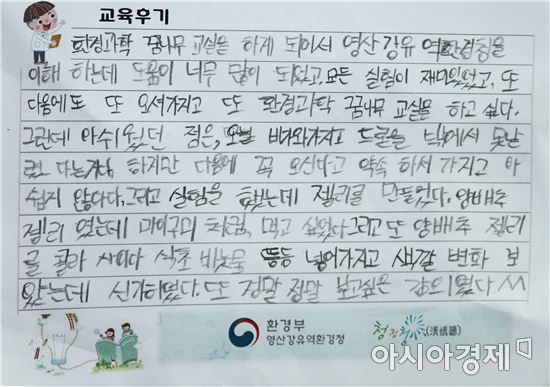 교육후기
환경과학 꿈나무 교실을 하게 되어서 영산강유역환경청을
이해 하는데 도움이 너무 많이 되었고, 모든 실험이 재미있었고, 또
다음에도 또 오셔가지고 또 환경과학 꿈나무 교실을 하고 싶다.
그런데 아쉬웠던 점은, 오늘 비가와가지고 드론을 밖에서 못날
렸다는거다, 하지만 다음에 꼭 오신다고 약속 하셔가지고 아
쉽지 않았다. 그리고 실험을 했는데 젤리를 만들었다. 양배추
젤리 였는데 마이구미 처럼, 먹고 싶었다 그리고 또 양배추 젤리
를 콜라 사이다 식초 비눗물 등등 넣어가지고 색깔 변화 보
았는데 신기하였다. 또 정말 정말 보고싶은 강의였다 ^^
환경부
영산강유역환경청
청정청 (淸情聽)
아시아경제